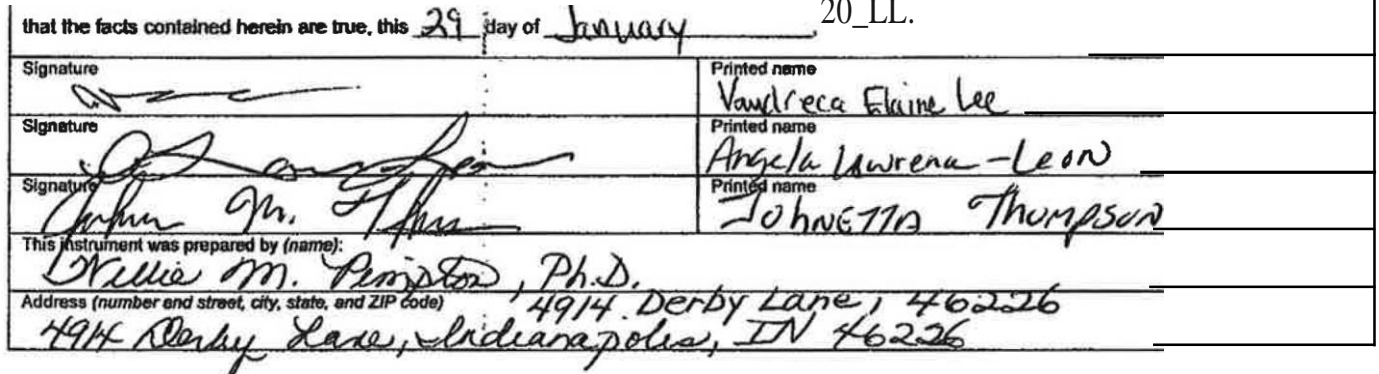 that the facts contained herein are true, this 29 day of January 20_LL.
Signature Printed name
Vandreca Elaine Lee
Signature Printed name
Angela Lawrence-Leon
Signature Printed name
John M. JOHNETTA THOMPSON
This instrument was prepared by (name):
Willie M. Pimpton, Ph.D.
Address (number and street, city, state, and ZIP code) 4914 Derby Lane, 46226
4914 Derby Lane, Indianapolis, IN 46226